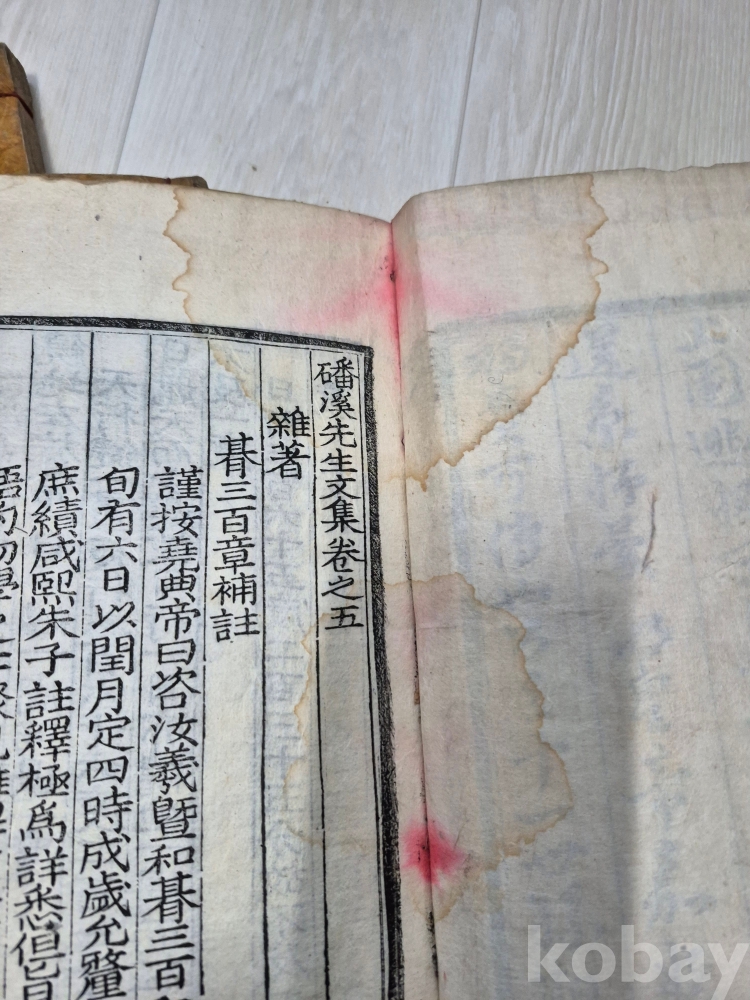 磻溪先生文集卷之五
雜著
朞三百章補註
謹按堯典帝曰咨汝羲曁和朞三百
旬有六日以閏月定四時成歲允釐
庶績咸熙朱子註釋極爲詳悉但
初學
kobay